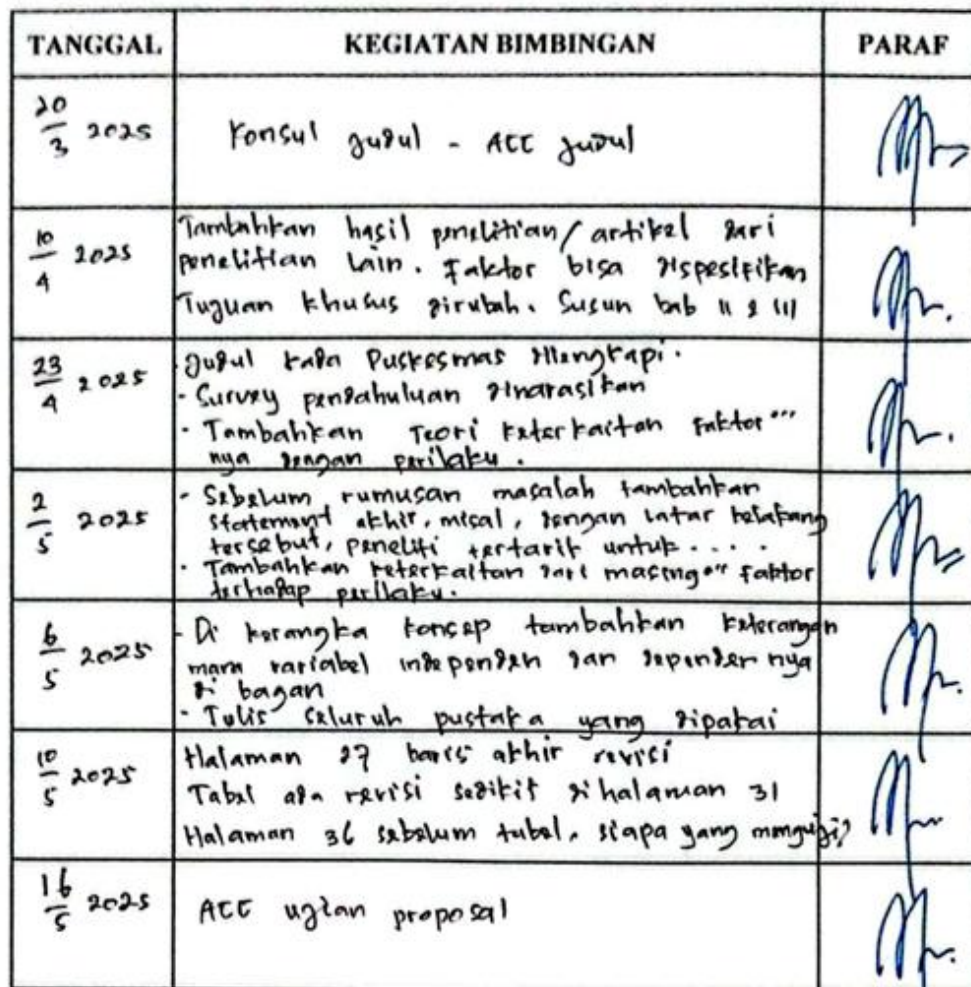 TANGGAL KEGIATAN BIMBINGAN PARAF
20/3 2025 Konsul judul - ACC judul
10/4 2025 Tambahkan hasil penelitian/artikel dari
penelitian lain. Faktor bisa dispesifikan
Tujuan khusus dirubah. Susun bab II & III
23/4 2025 Judul kata Puskesmas dilengkapi.
- Survey pendahuluan dinarasikan
- Tambahkan Teori keterkaitan faktor"
nya dengan perilaku.
2/5 2025 - Sebelum rumusan masalah tambahkan
statement akhir, misal, dengan latar belakang
tersebut, peneliti tertarik untuk....
- Tambahkan keterkaitan dari masing" faktor
terhadap perilaku.
6/5 2025 - Di kerangka konsep tambahkan keterangan
mana variabel independen dan dependen nya
di bagan
- Tulis seluruh pustaka yang dipakai
10/5 2025 Halaman 27 baris akhir revisi
Tabel ada revisi sedikit di halaman 31
Halaman 36 sebelum tabel, siapa yang menguji?
16/5 2025 ACC ujian proposal